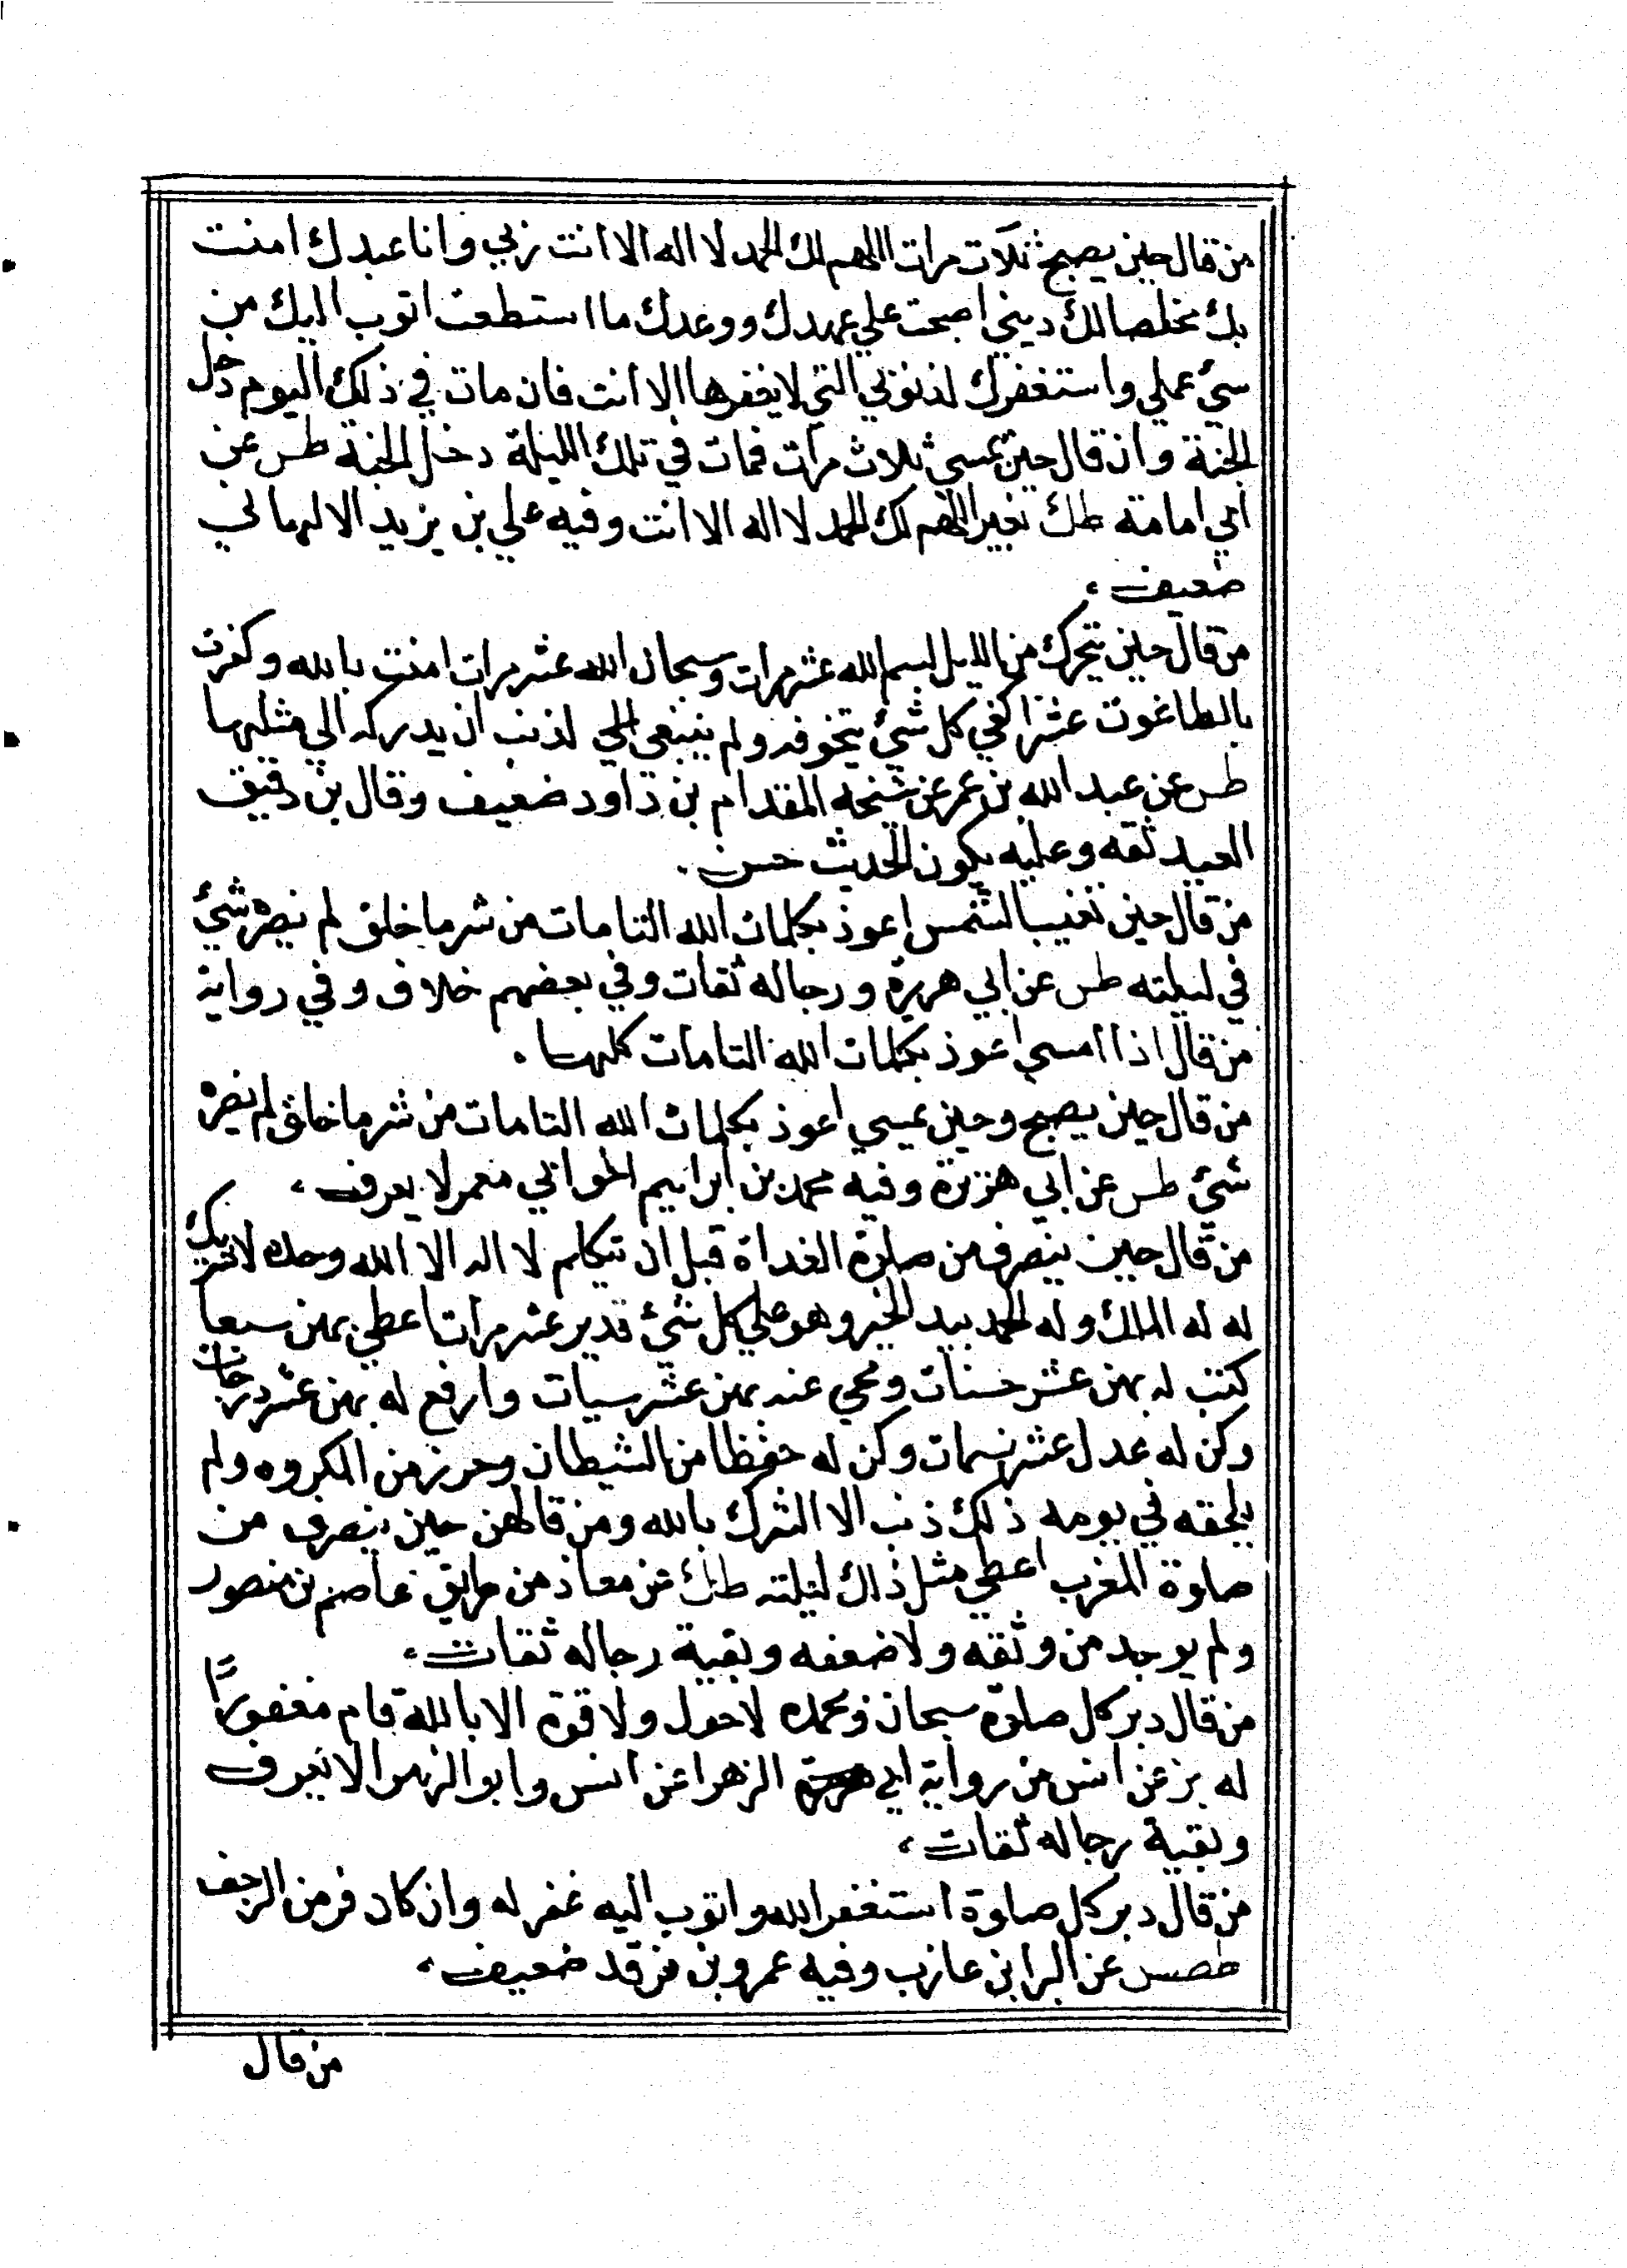 من قال حين يصبح ثلاث مرات اللهم لك الحمد لا اله الا انت ربي وانا عبدك امنت
بك مخلصا لك ديني اصبحت علي عهدك ووعدك ما استطعت اتوب اليك من
سيئ عملي واستغفرك لذنوبي التي لا يغفرها الا انت فان مات في ذلك اليوم دخل
الجنة وان قال حين يمسي ثلاث مرات فمات في تلك الليلة دخل الجنة طس عن
ابي امامة طك تغير اللهم لك الحمد لا اله الا انت وفيه علي بن يزيد الالهاني
ضعيف،
من قال حين يتحرك من الليل بسم الله عشر مرات وسبحان الله عشر مرات امنت بالله وكفرت
بالطاغوت عشرا كفي كل شيئ يتخوفه ولم ينبغي لذنب ان يدركه الي مثلها
طس عن عبد الله بن عمر عن شيخه المقدام بن داود ضعيف وقال بن دقيق
العيد ثقه وعليه يكون الحديث حسن.
من قال حين تغيب الشمس اعوذ بكلمات الله التامات من شر ما خلق لم يضره شيئ
في ليلته طس عن ابي هريرة ورجاله ثقات وفي بعضهم خلاف وفي رواية
من قال اذا امسي اعوذ بكلمات الله التامات كلها.
من قال حين يصبح وحين يمسي اعوذ بكلمات الله التامات من شر ما خلق لم يضره
شيئ طس عن ابي هريرة وفيه محمد بن ابراهيم الحواني معمر لا يعرف،
من قال حين ينصرف من صلوة الغداة قبل ان تيكلم لا اله الا الله وحده لا شريك
له له الملك وله الحمد بيد الخير وهو علي كل شيئ قدير عشر مرات اعطي بهن سبعا
كتب له بهن عشر حسنات ومحي عنه بهن عشر سيات وارفع له بهن عشر درجات
وكن له عدل عشر نسمات وكن له حفظا من الشيطان وحرز من المكروه ولم
يلحقه في يومه ذلك ذنب الا الشرك بالله ومن قالهن حين ينصرف من
صلوة المغرب اعطي مثل ذلك ليلته طك عن معاذ من طريق عاصم بن منصور
ولم يوجد من وثقه ولا ضعفه وبقية رجاله ثقات،
من قال دبر كل صلوة سبحان وبحمده لا حول ولا قوة الا بالله قام مغفورًا
له بز عن انس من رواية ابي الزهرا عن انس وابو الزهرا لا يعرف
وبقية رجاله ثقات،
من قال دبر كل صلوة استغفر الله واتوب اليه غفر له وان كان فر من الزحف
طصس عن البرا بن عازب وفيه عمرو بن فرقد ضعيف،
من قال